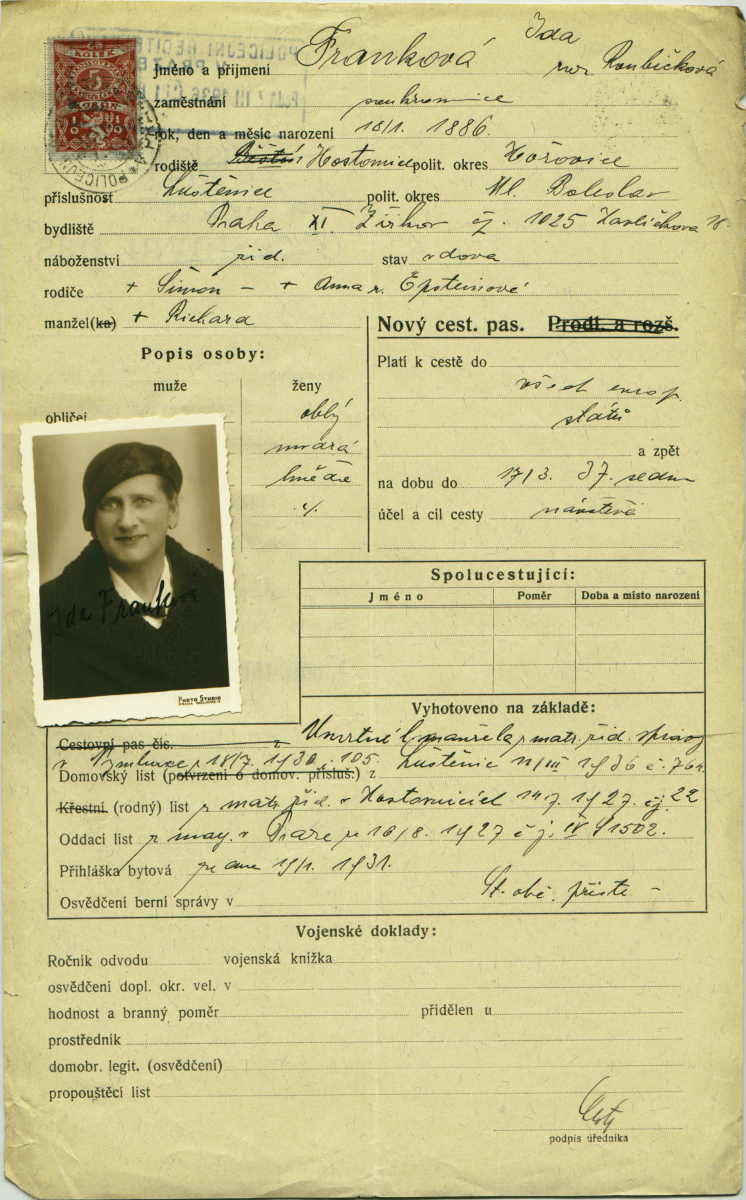 KOLEK
5
Ida
Jméno a příjmení Franková roz. Roubíčková
zaměstnání soukromnice
rok, den a měsíc narození 18/1. 1886.
rodiště Hostomice polit. okres Hořovice
příslušnost Luštěnice polit. okres Ml. Boleslav
bydliště Praha XI. Žižkov čj. 1025 Havlíčkova
náboženství žid. stav vdova
rodiče + Šimon - + Anna r. Epsteinové
manžel(ka) + Richard
Nový cest. pas. Prodl. a rozš.
Popis osoby:
Platí k cestě do
muže ženy
všech evrop.
obličej oblý
států
a zpět
hnědé
na dobu do 17/3. 37.
účel a cíl cesty návštěva
Ida Franková
PHOTO STUDIO
Spolucestující:
Jméno Poměr Doba a místo narození
Vyhotoveno na základě:
Cestovní pas čís. z Úmrtní l. manžela z matr. žid. správy
v Nymburce 18/7. 1930 105.
Domovský list (potvrzení o domov. přísluš.) z Luštěnic 11/III 1936 č. 764.
Křestní (rodný) list z matr. žid. v Hostomicích 14/7. 1927. čj. 22
Oddací list z mag. v Praze z 16/8. 1927 čj. IV 1502.
Přihláška bytová ze dne 19/1. 1931.
Osvědčení berní správy v St. obč. příště -
Vojenské doklady:
Ročník odvodu vojenská knížka
osvědčení dopl. okr. vel. v
hodnost a branný poměr přidělen u
prostředník
domobr. legit. (osvědčení)
propouštěcí list
podpis úředníka